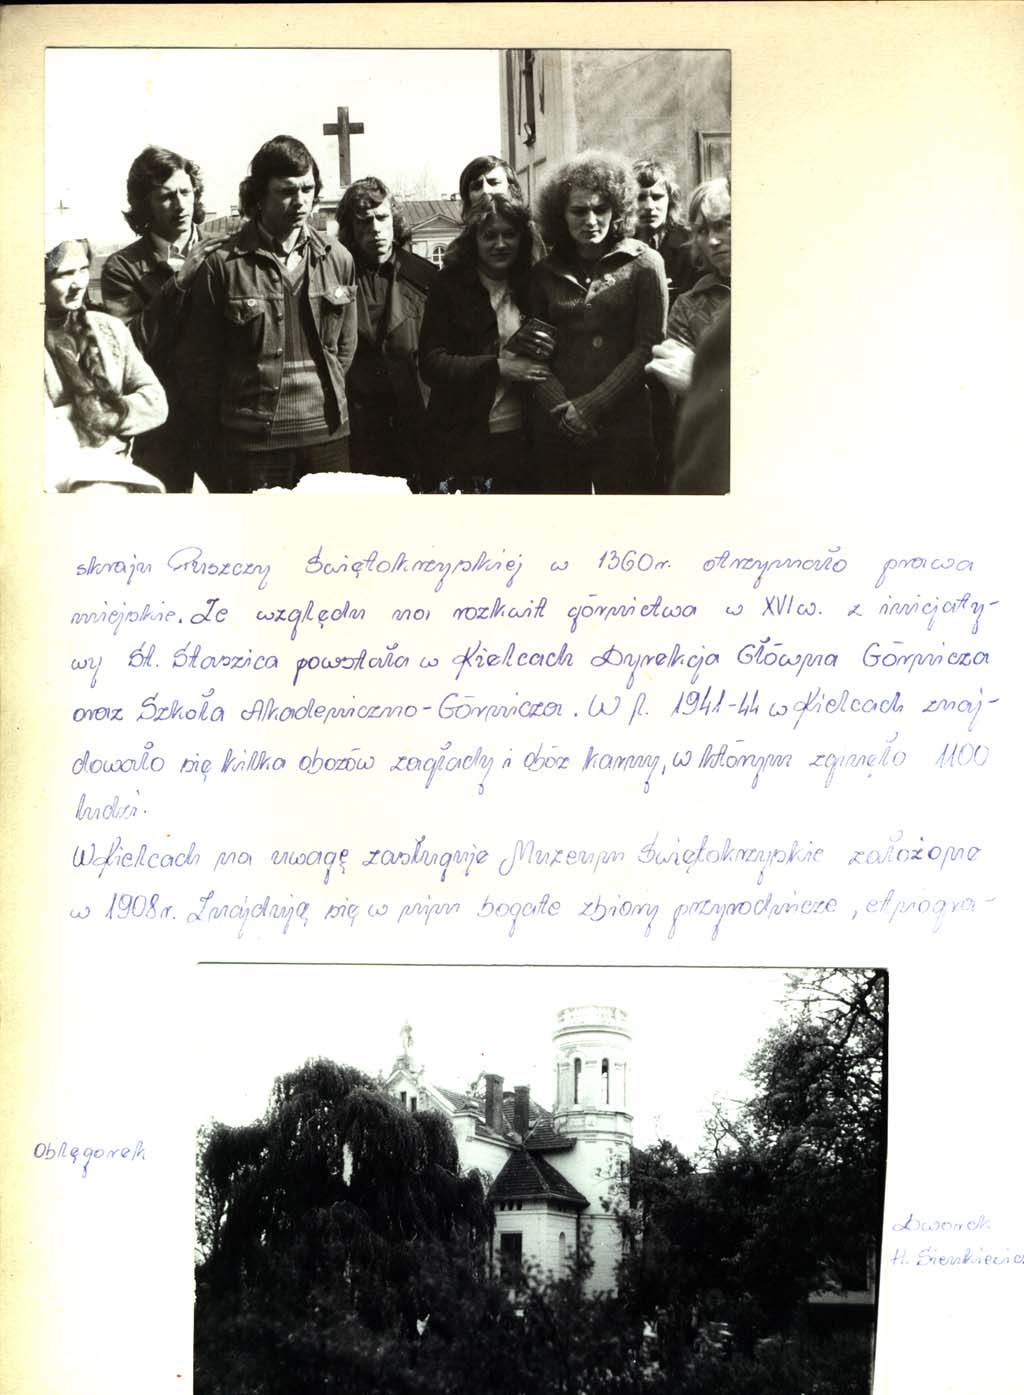 skraju Puszczy Świętokrzyskiej w 1360r. otrzymało prawa
miejskie. Ze względu na rozkwit górnictwa w XVIw. z inicjaty-
wy St. Staszica powstała w Kielcach Dyrekcja Główna Górnicza
oraz Szkoła Akademiczno-Górnicza. W l. 1941-44 w Kielcach znaj-
dowało się kilka obozów zagłady i obóz karny, w którym zginęło 1100
ludzi.
W Kielcach na uwagę zasługuje Muzeum Świętokrzyskie założone
w 1908r. Znajdują się w nim bogate zbiory przyrodnicze, etnogra-
Oblęgorek
Dworek
H. Sienkiewicz